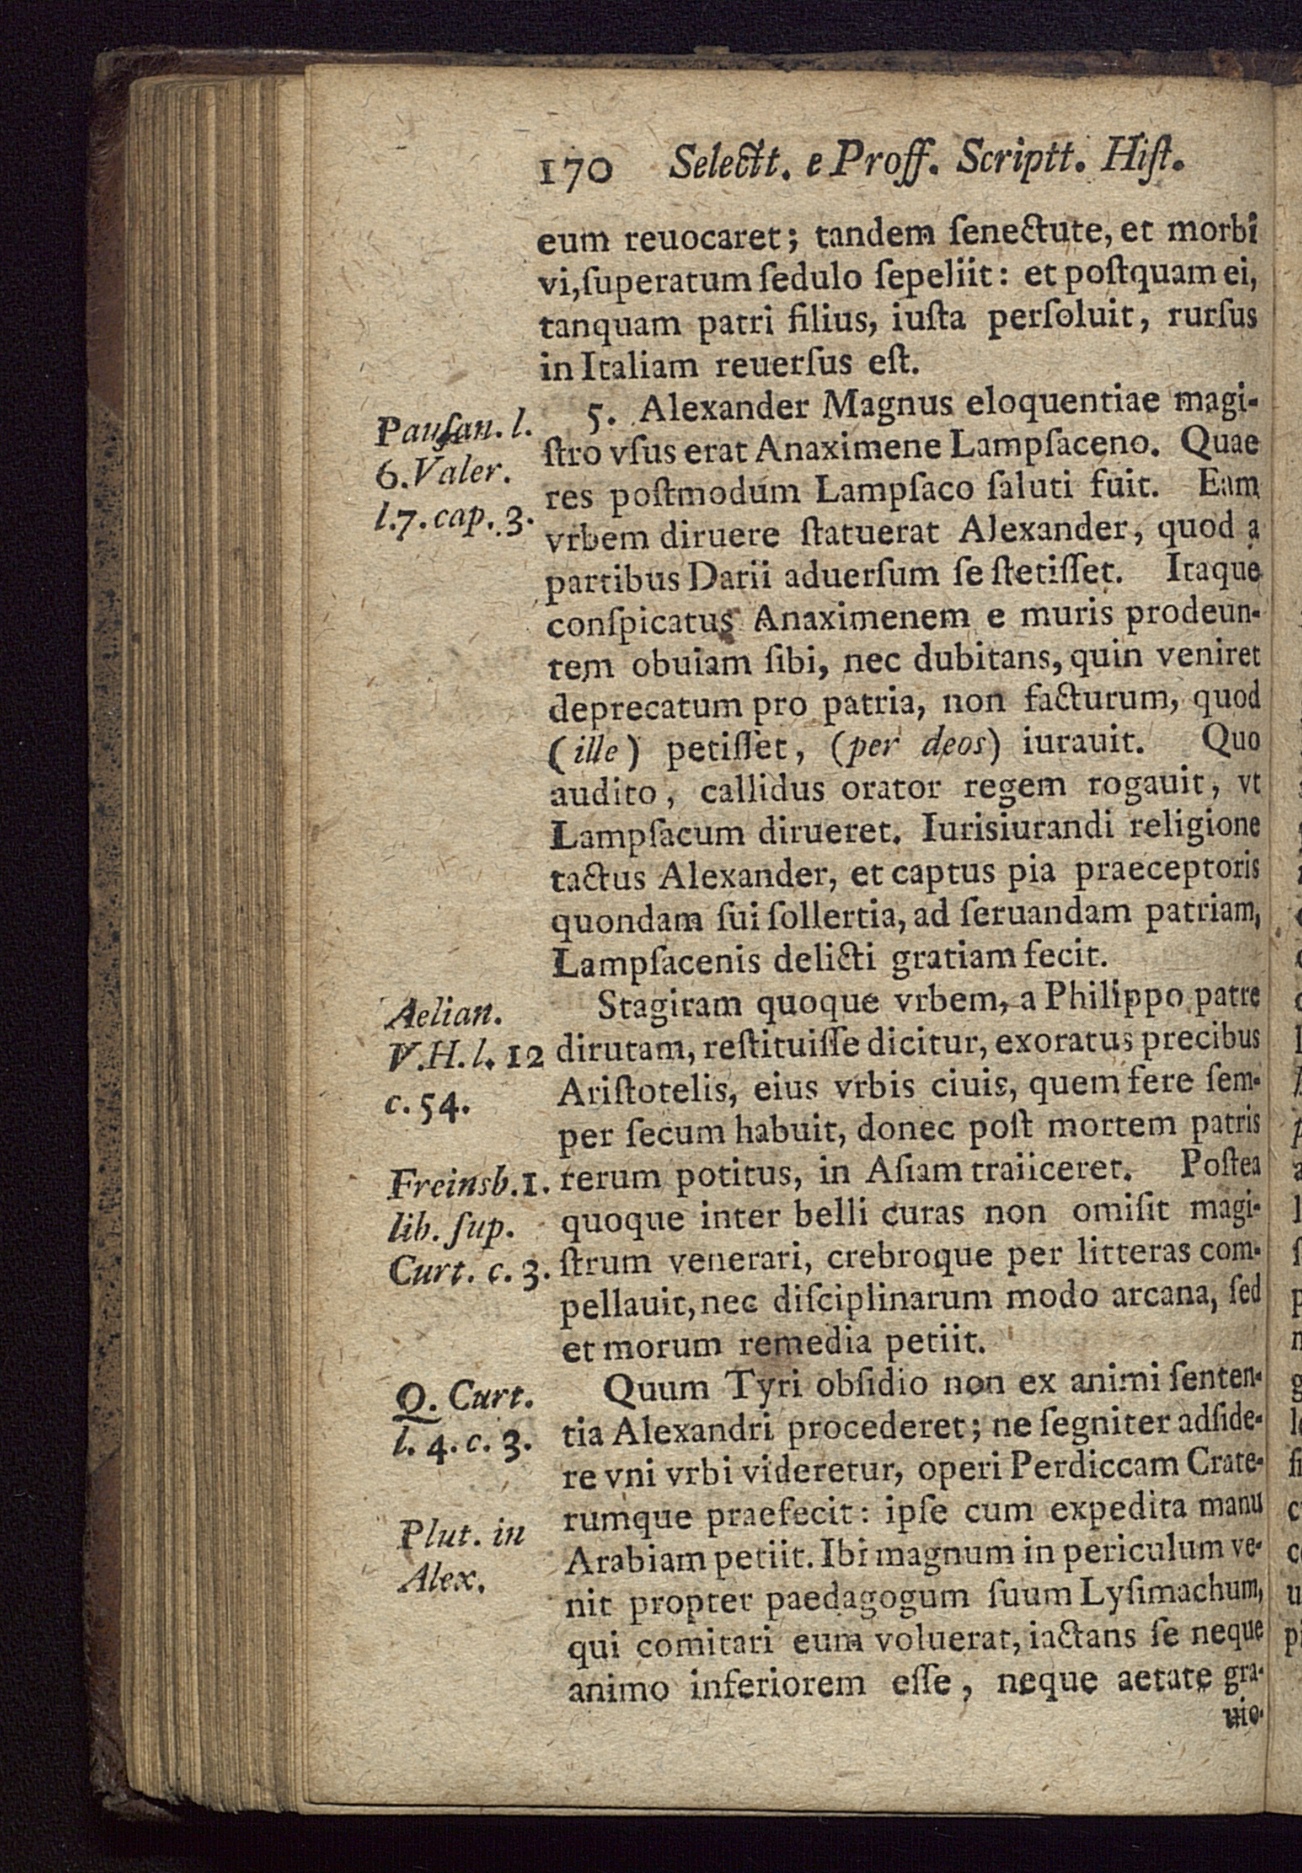 170 Selectt. e Proff. Scriptt. Hiſt.
eum reuocaret; tandem ſenectute, et morbi
vi, ſuperatum ſedulo ſepeliit: et poſtquam ei,
tanquam patri filius, iuſta perſoluit, rurſus
in Italiam reuerſus eſt.
Pauſan. l.
6. Valer.
l. 7. cap. 3.
5. Alexander Magnus eloquentiae magi-
ſtro vſus erat Anaximene Lampſaceno. Quae
res poſtmodum Lampſaco ſaluti fuit. Eam
vrbem diruere ſtatuerat Alexander, quod a
partibus Darii aduerſum ſe ſtetiſſet. Itaque
conſpicatus Anaximenem e muris prodeun-
tem obuiam ſibi, nec dubitans, quin veniret
deprecatum pro patria, non facturum, quod
(ille) petiſſet, (per deos) iurauit. Quo
audito, callidus orator regem rogauit, vt
Lampſacum dirueret. Iurisiurandi religione
tactus Alexander, et captus pia praeceptoris
quondam ſui ſollertia, ad ſeruandam patriam,
Lampſacenis delicti gratiam fecit.
Aelian.
V. H. l. 12
c. 54.
Stagiram quoque vrbem, a Philippo patre
dirutam, reſtituiſſe dicitur, exoratus precibus
Ariſtotelis, eius vrbis ciuis, quem fere ſem-
per ſecum habuit, donec poſt mortem patris
Freinsb. 1.
lib. ſup.
Curt. c. 3.
rerum potitus, in Aſiam traiiceret. Poſtea
quoque inter belli curas non omiſit magi-
ſtrum venerari, crebroque per litteras com-
pellauit, nec diſciplinarum modo arcana, ſed
et morum remedia petiit.
Q. Curt.
l. 4. c. 3.
Quum Tyri obſidio non ex animi ſenten-
tia Alexandri procederet; ne ſegniter adſide-
re vni vrbi videretur, operi Perdiccam Crate-
Plut. in
Alex.
rumque praefecit: ipſe cum expedita manu
Arabiam petiit. Ibi magnum in periculum ve-
nit propter paedagogum ſuum Lyſimachum,
qui comitari eum voluerat, iactans ſe neque
animo inferiorem eſſe, neque aetate gra-
uio-